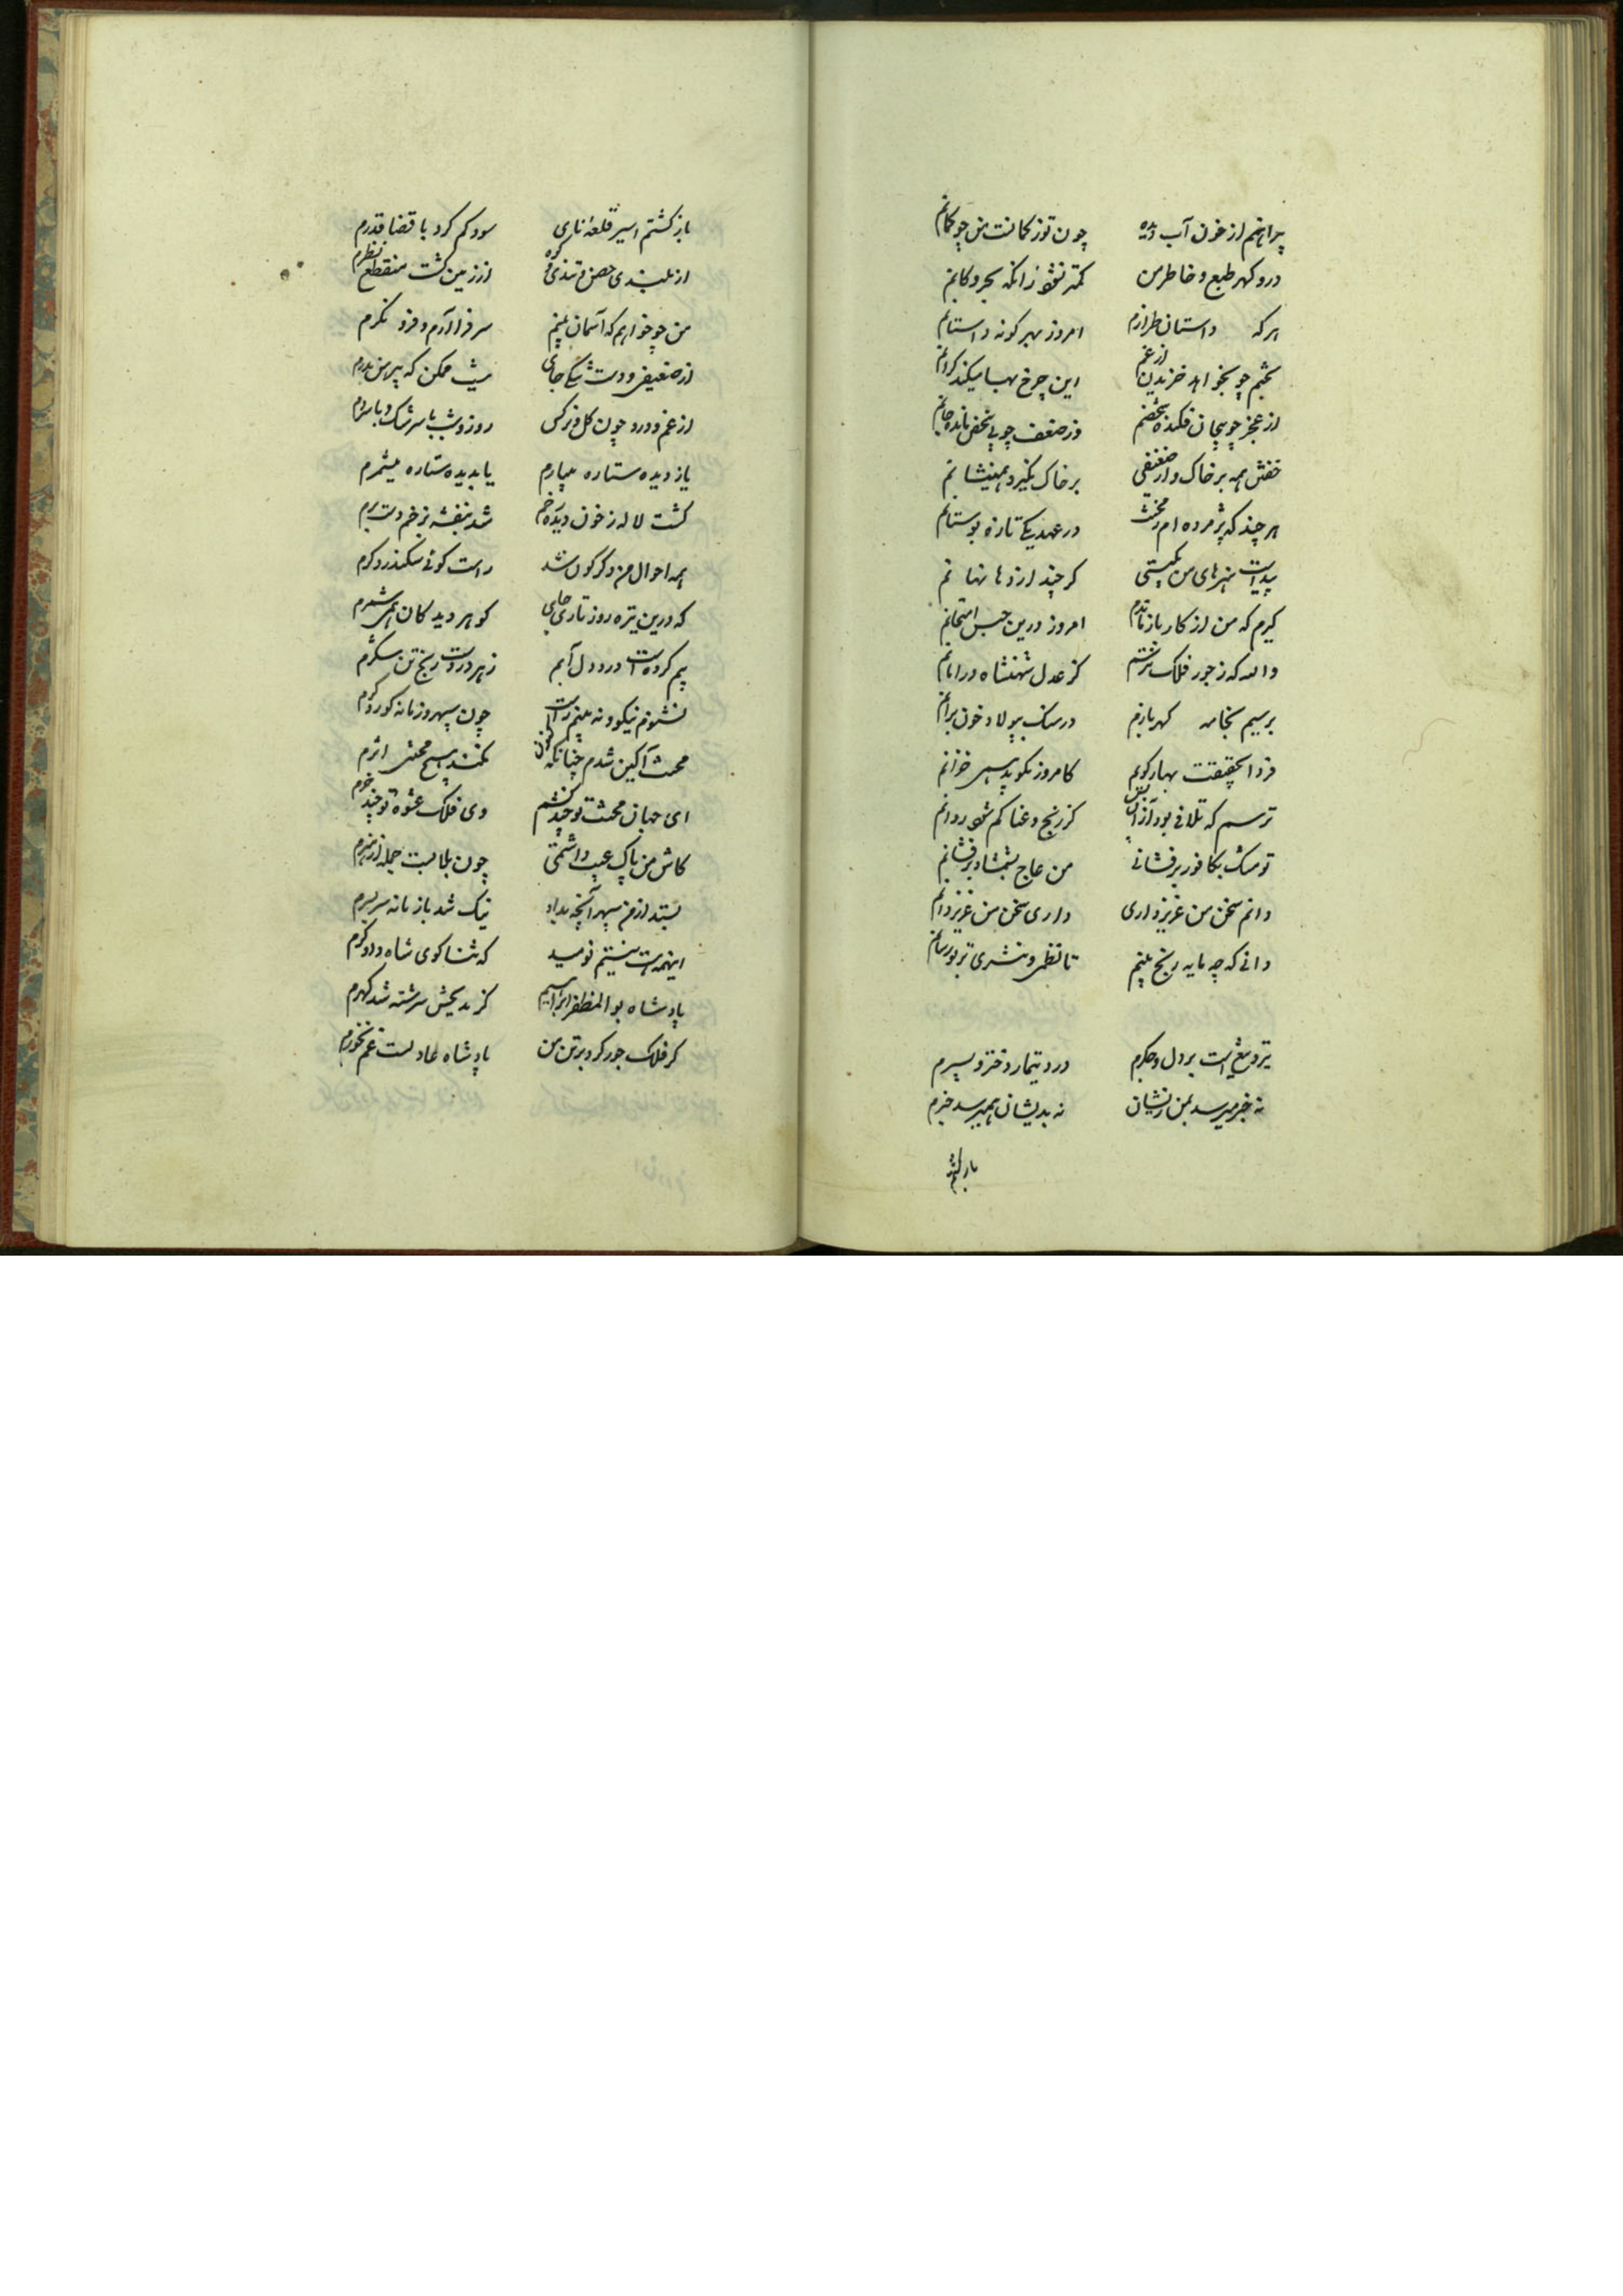 پیراهنم از خون آب دیده چون توز کمانست من چو کمانم
در و کهر طبع و خاطر من کمتر نشود زانکه بحر و کانم
هر که داستان طرازم امروز بهر کونه داستانم
بخشم چو بخواهد خریدن از غم این چرخ بها میکند کرانم
از عجز چو بیجان فکنده شخصم وز ضعف چو بی شخص مانده جانم
خفتن همه بر خاک و از ضعیفی بر خاک نگیرد همی نشانم
هر چند که پژمرده ام ز محنت در عهد یکی تازه بوستانم
پیداست هنرهای من بکیتی کر چند از دها نهانم
کیرم که من از کار باز ماندم امروز درین حبس امتحانم
والله که ز جور فلک نترسم کز عدل شهنشاه در امانم
بر سیم بخامه کهر بارم در سنک بپولاد خون برانم
فردا بحقیقت بهار کویم کامروز نکوید بسی خزانم
ترسم که تلافی بود ازان پس کز رنج و عنا کم شود روانم
تو مشک بکافور بر فشانی من عاج بشمشاد بر فشانم
دانم سخن من عزیز داری داری سخن من عزیز دانم
دانی که چه مایه رنج بینم تا نظمی و نثری بتو رسانم
تیر و تیغ است بر دل و جکرم درد و تیمار دختر و پسرم
نه خبر میرسد بمن زیشان نه بدیشان همی رسد خبرم
باز کشتم
باز کشتم اسیر قلعه نای سود کم کرد با قضا قدرم
از بلندی حصن و تندی کوه از زمین کشت منقطع نظرم
من چو خواهم که آسمان بینم سر فرا آرم و فرو نکرم
از ضعیفی دست و تنکی جای نیست ممکن که پیرهن بدرم
از غم و درد چون کل و نرکس روز و شب با سرشک و با سهرم
یا ز دیده ستاره میبارم یا بدیده ستاره میشمرم
کشت لاله ز خون دیده رخم شد بنفشه ز زخم دست برم
همه احوال من دکر کون شد راست کوئی سکندر دکرم
که درین تیره روز تاری جای کوهر دیدکان همی شمرم
بیم کرده است درد دل آبم زهر دردست رنج تن شکرم
نشنوم نیکو و نه بینم راست چون سپهر و زمانه کور و کرم
محنت آکین شدم چنانکه کنون نکند هیچ محنتی اثرم
ای جهان محنت تو چند کشم وی فلک عشوه تو چند خرم
کاش من پاک عیب داشتمی چون بلا هست جمله از هنرم
بستد از من سپهر آنچه بداد نیک شد باز مانه سر بسرم
اینهمه هست نیستم نومید که ثنا کوی شاه دادکرم
پادشاه بوالمظفر ابراهیم کز مدیحش سرشته شد کهرم
کر فلک جور کرد بر تن من پادشاه عادلست غم نخورم